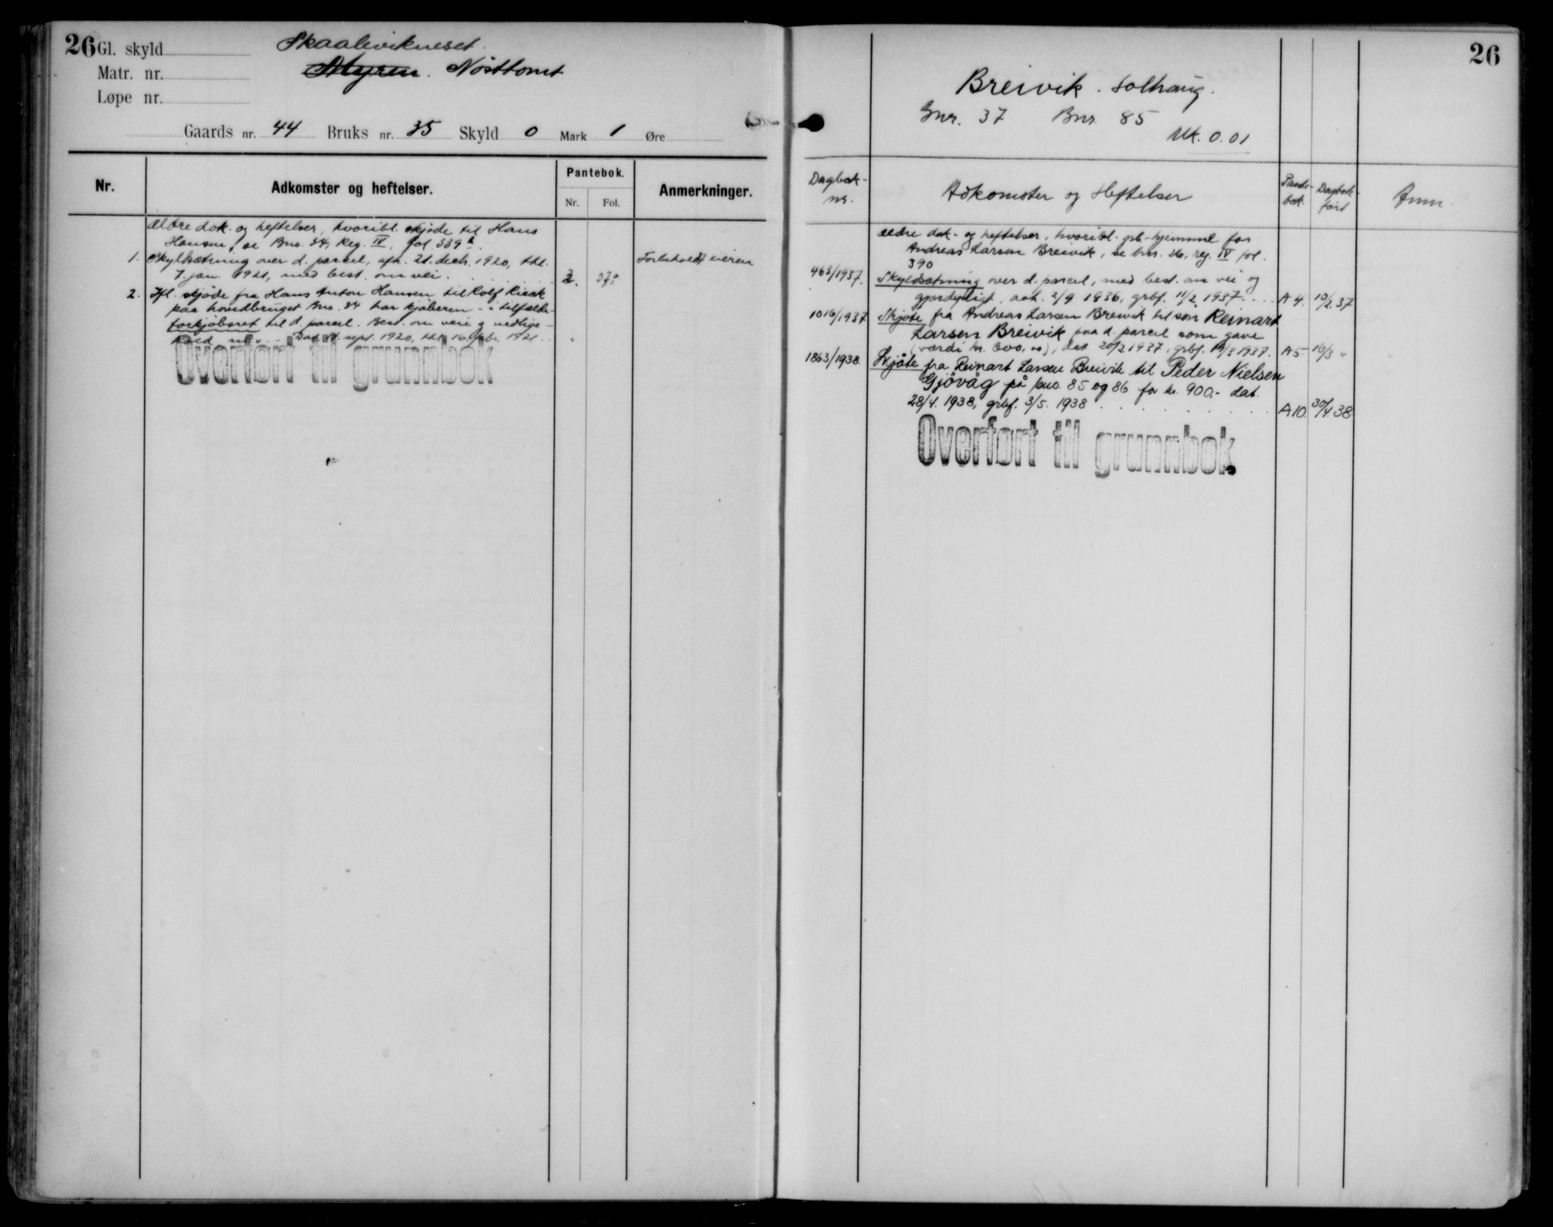 26 Gl. skyld Skaalevikneset.
Matr. nr. Myren. Nösttomt
Løpe nr.
Gaards nr. 44 Bruks nr. 35 Skyld 0 Mark 1 Øre
Nr. Adkomster og heftelser. Pantebok. Anmerkninger.
Nr. Fol.
Ældre dok. og heftelser, hvoribl. skjøde til Hans
Hansen, se Bno. 34, Reg. IV, fol. 339
1. Skyldsætning over d. parcel, afh. 21. decb. 1920, thl. Forbeholdt eieren
7 jan. 1921, med best. om vei. 2.
2. skjøde fra Hans Anton Hansen til Rolf
paa hovedbruget Bno. 34 har kjøberen i tilfælde
forkjøbsret til d. parcel. Best. om veie og vedlige-
hold m.v. Dat. sept. 1920, thl. 16 febr. 1921
Overført til grunnbok
26
Breivik - Solhaug.
Gnr. 37 Bnr. 85
Mk. 0.01
Dagbok-nr. Adkomster og Heftelser Pante-bok. Dagbok-ført Anm.
Ældre dok- og heftelser, hvoribl. grb-hjemmel for
Andreas Larsen Breivik, se bnr. 26, reg. IV fol.
390
463/1937. Skyldsætning over d. parcel, med best. om vei og
gjerdepligt, avh. 2/9 1936, grbf. 11/2 1937. A 4. 10/2 37
1016/1937 Skjøte fra Andreas Larsen Breivik til søn Reinart
Larsen Breivik paa d. parcel som gave
(værdi kr. 300,00), dat 20/2 1937, grbf. 19/3 1937. A 5 16/3 "
1863/1938. Skjøte fra Reinart Larsen Breivik til Peder Nielsen
Gjövåg på bno. 85 og 86 for kr. 900.- dat.
28/4. 1938, grbf. 3/5. 1938 A 10. 30/4 38
Overført til grunnbok.